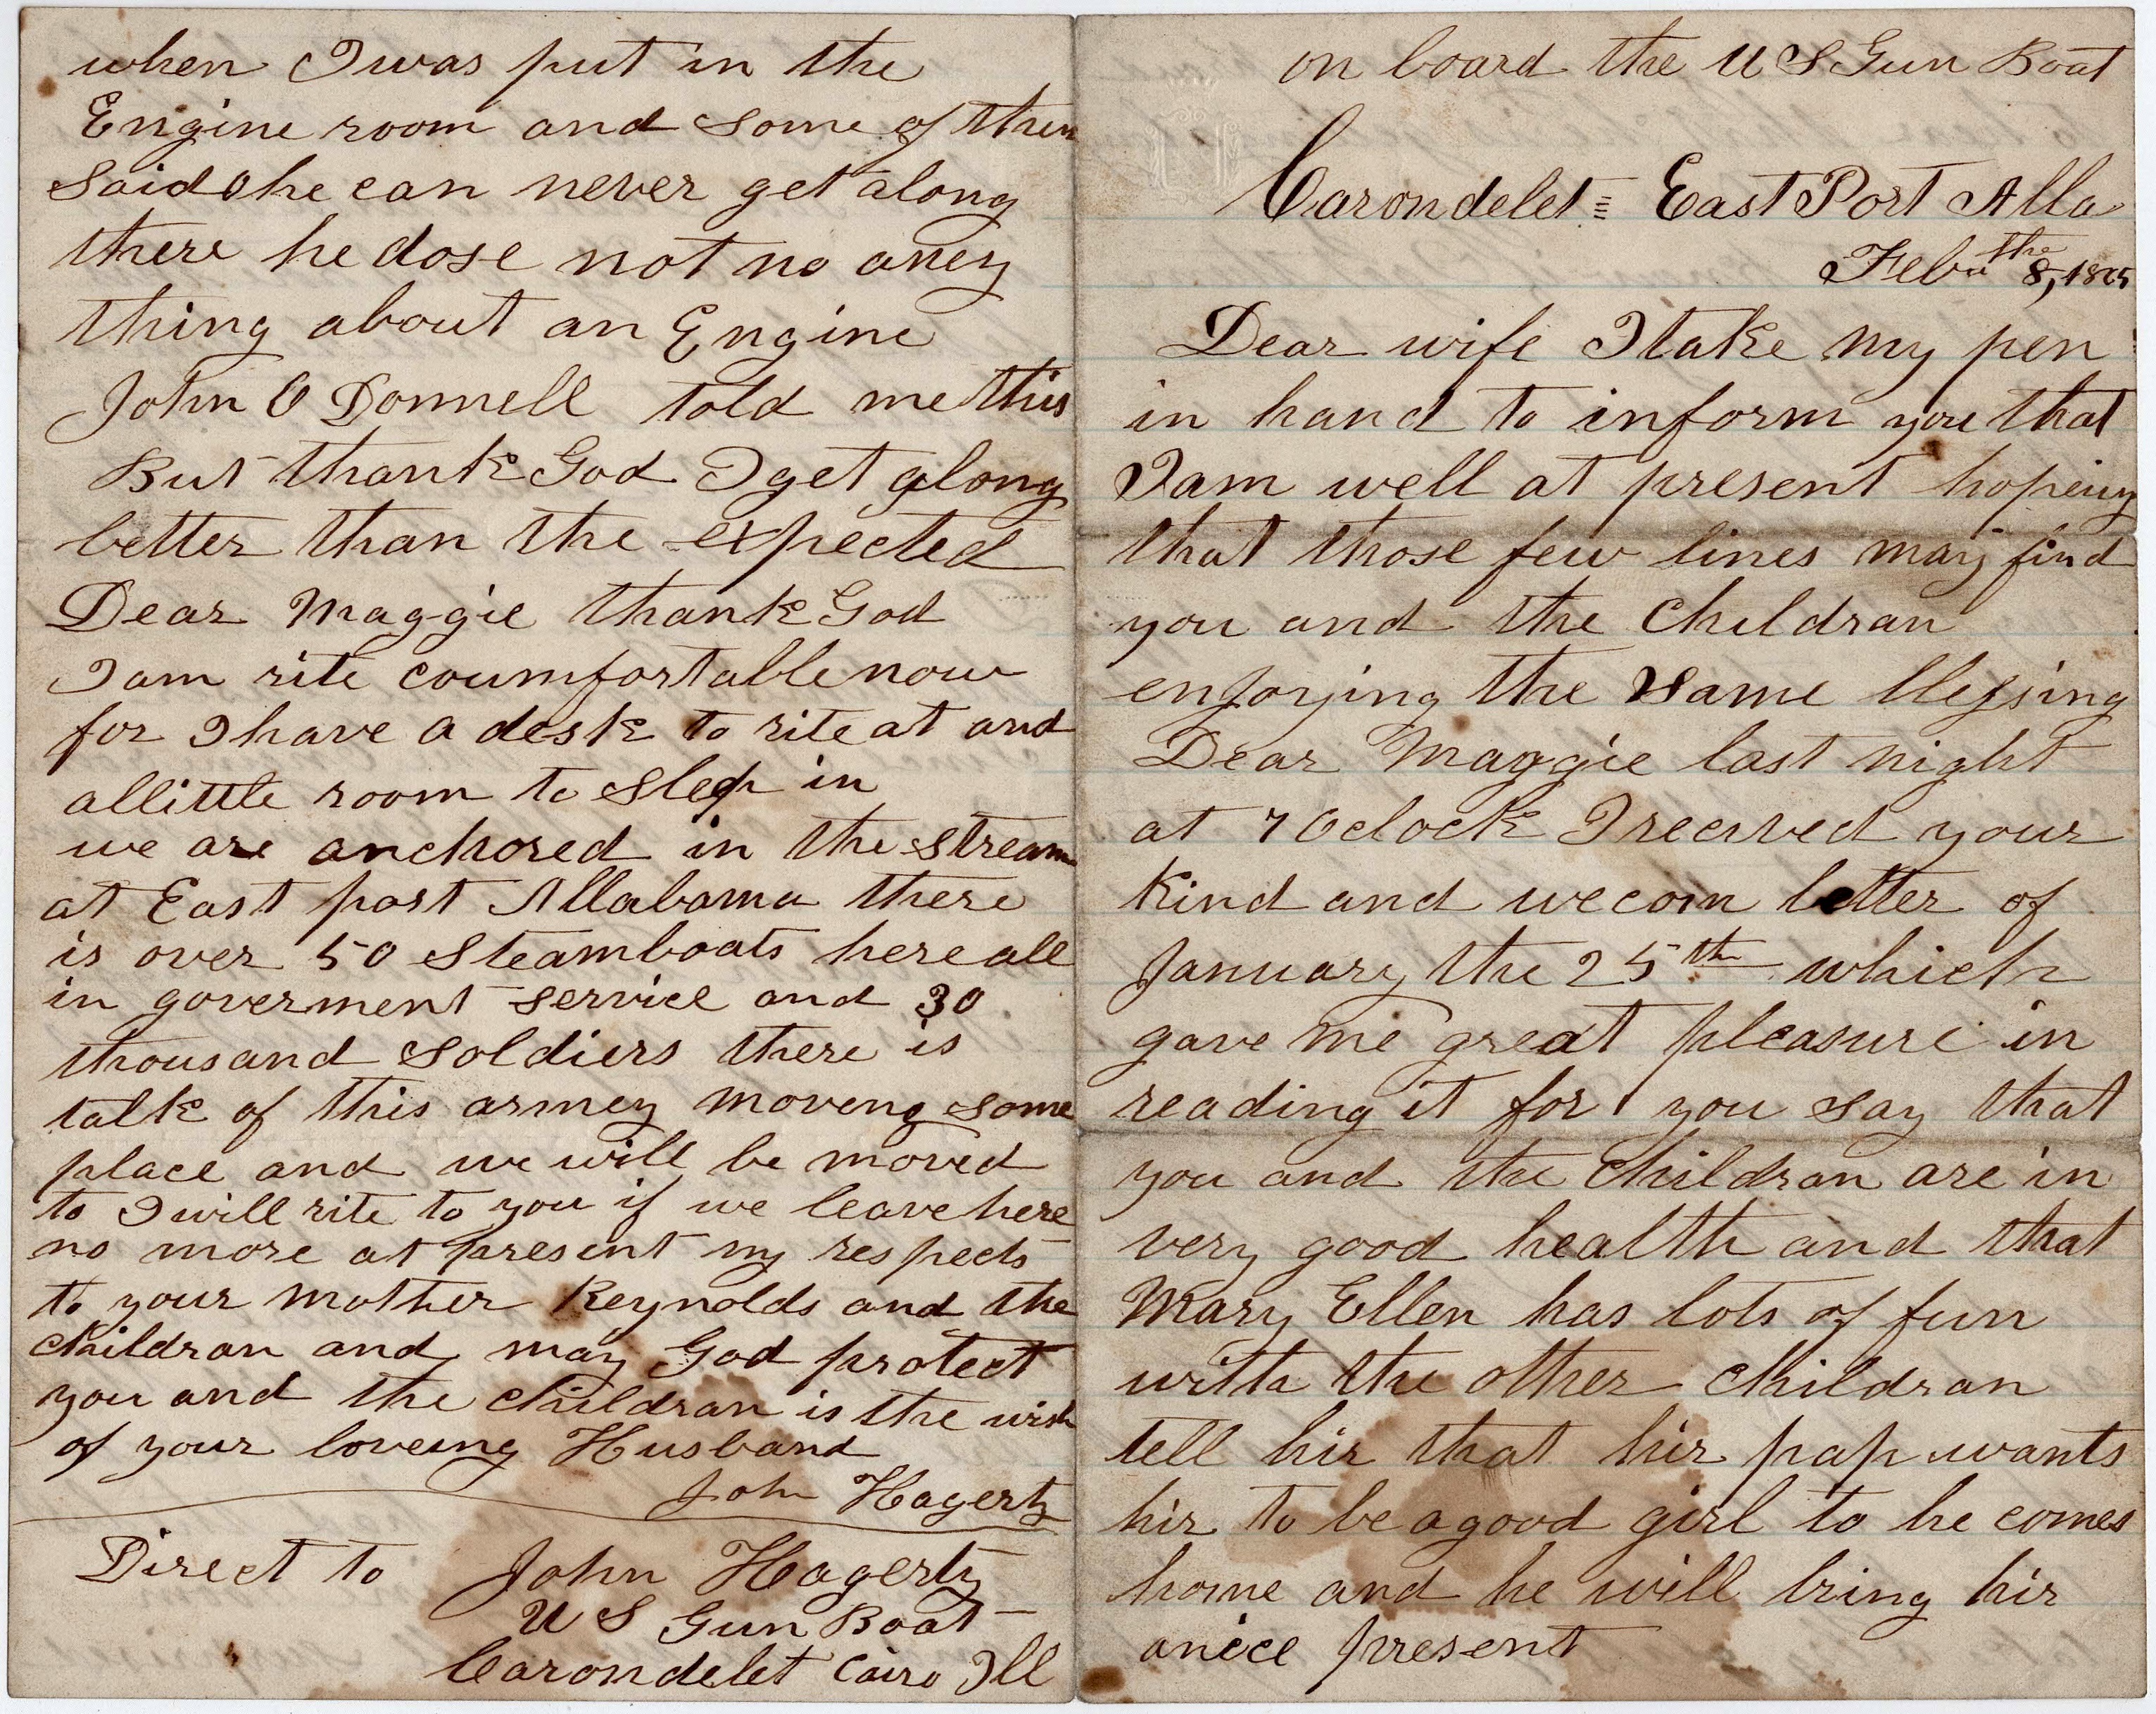 on board the U S Gun Boat
Carondelet = East Port Alla
Feb the 8, 1865
Dear wife I take my pen
in hand to inform you that
I am well at present hopeing
that those few lines may find
you and the Childran
enjoying the same blessing
Dear Maggie last night
at 7 Oclock I recived your
kind and wecom letter of
January the 25th which
gave me great pleasure in
reading it for you say that
you and the Childran are in
very good health and that
Mary Ellen has lots of fun
with the other Childran
tell hir that hir pap wants
hir to be a good girl to he comes
home and he will bring hir
anice present
when I was put in the
Engine room and some of them
said o he can never get along
there he dose not no aney
thing about an Engine
John O Donnell told me this
But thank God I get along
better than the expected
Dear Maggie thank God
I am rite coumfortable now
for I have a desk to rite at and
allittle room to slep in
we are anchored in the stream
at East port Allabama there
is over 50 Steamboats here all
in goverment service and 30
thousand soldiers there is
talk of this armey moveng some
place and we will be moved
to I will rite to you if we leave here
no more at present my respects
to your mother Reynolds and the
childran and may God protect
you and the childran is the wish
of your loveing Husband
John Hagerty
Direct to John Hagerty
U S Gun Boat
Carondelet Cairo Ill